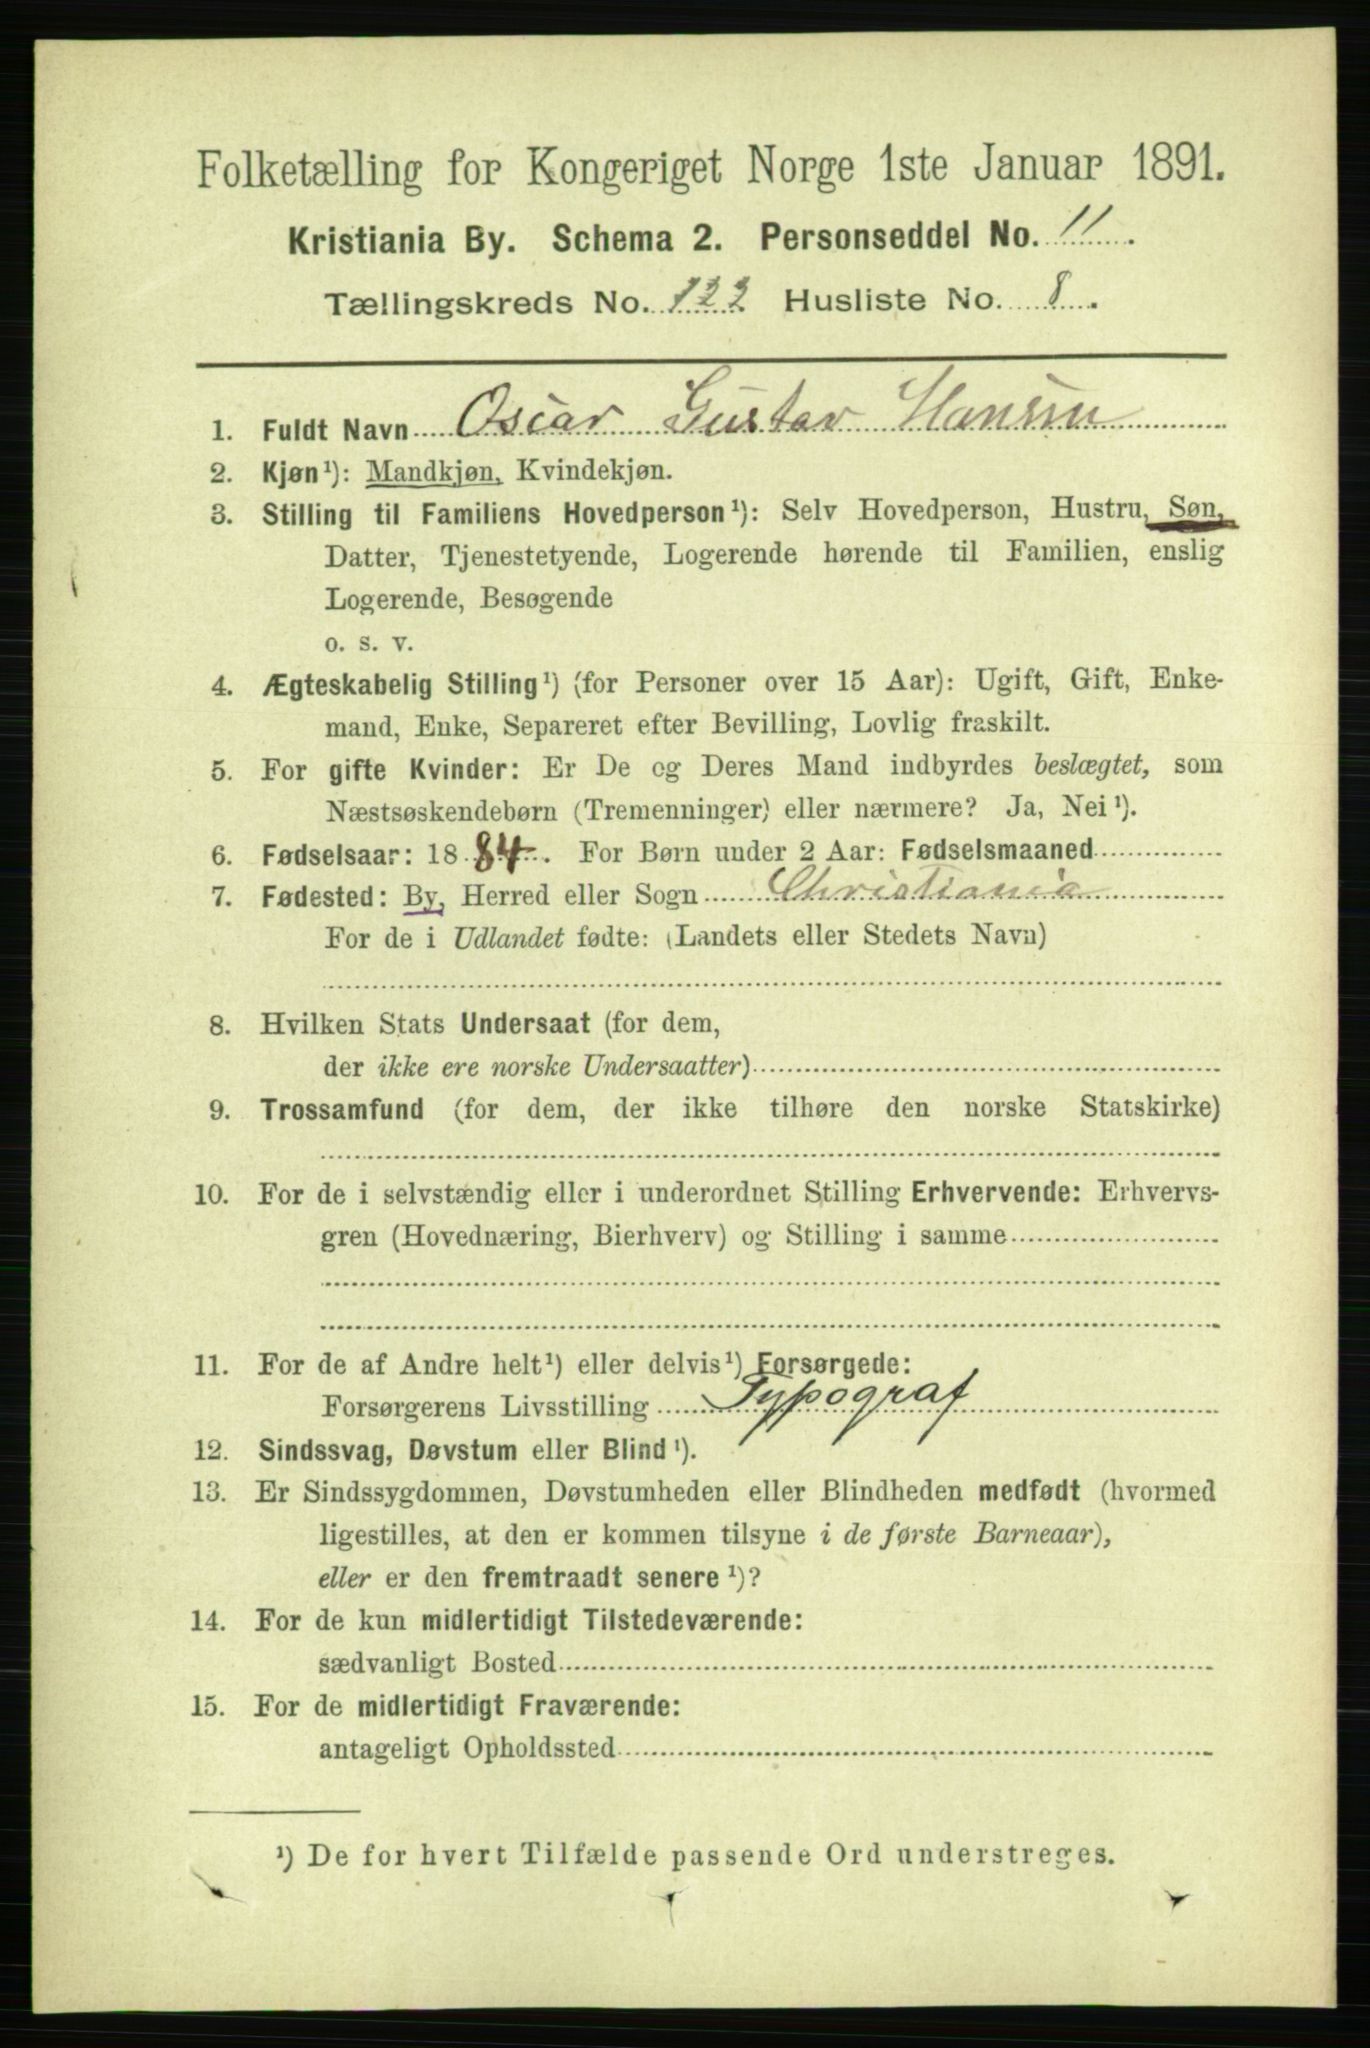 Folketælling for Kongeriget Norge 1ste Januar 1891.
Kristiania By. Schema 2. Personseddel No. 11.
Tællingskreds No. 122 Husliste No. 8.
1. Fuldt Navn Oscar Gustav Hansen
2. Kjøn¹): Mandkjøn, Kvindekjøn.
3. Stilling til Familiens Hovedperson¹): Selv Hovedperson, Hustru, Søn,
Datter, Tjenestetyende, Logerende hørende til Familien, enslig
Logerende, Besøgende
o. s. v.
4. Ægteskabelig Stilling¹) (for Personer over 15 Aar): Ugift, Gift, Enke-
mand, Enke, Separeret efter Bevilling, Lovlig fraskilt.
5. For gifte Kvinder: Er De og Deres Mand indbyrdes beslægtet, som
Næstsøskendebørn (Tremenninger) eller nærmere? Ja, Nei¹).
6. Fødselsaar: 1884. For Børn under 2 Aar: Fødselsmaaned
7. Fødested: By, Herred eller Sogn Christiania
For de i Udlandet fødte: (Landets eller Stedets Navn)
8. Hvilken Stats Undersaat (for dem,
der ikke ere norske Undersaatter)
9. Trossamfund (for dem, der ikke tilhøre den norske Statskirke)
10. For de i selvstændig eller i underordnet Stilling Erhvervende: Erhvervs-
gren (Hovednæring, Bierhverv) og Stilling i samme
11. For de af Andre helt¹) eller delvis¹) Forsørgede:
Forsørgerens Livsstilling Typograf
12. Sindssvag, Døvstum eller Blind¹).
13. Er Sindssygdommen, Døvstumheden eller Blindheden medfødt (hvormed
ligestilles, at den er kommen tilsyne i de første Barneaar),
eller er den fremtraadt senere¹)?
14. For de kun midlertidigt Tilstedeværende:
sædvanligt Bosted
15. For de midlertidigt Fraværende:
antageligt Opholdssted
¹) De for hvert Tilfælde passende Ord understreges.